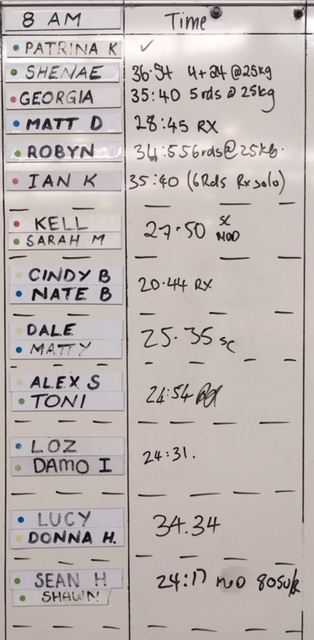 8 AM Time
PATRINA K ✓
SHENAE 4+24 @25kg
GEORGIA 35:40 5rds @ 25kg
MATT D 28:45 RX
ROBYN
IAN K 35:40 (6Rds Rx solo)
KELL 27.50 SC
SARAH M MOD
CINDY B 20.44 RX
NATE B
DALE 25.35 SC
MATTY
ALEX S 24:54
TONI
LOZ 24:31.
DAMO I
LUCY 34.34
DONNA H.
SEAN H 24:17 MOD
SHAWN